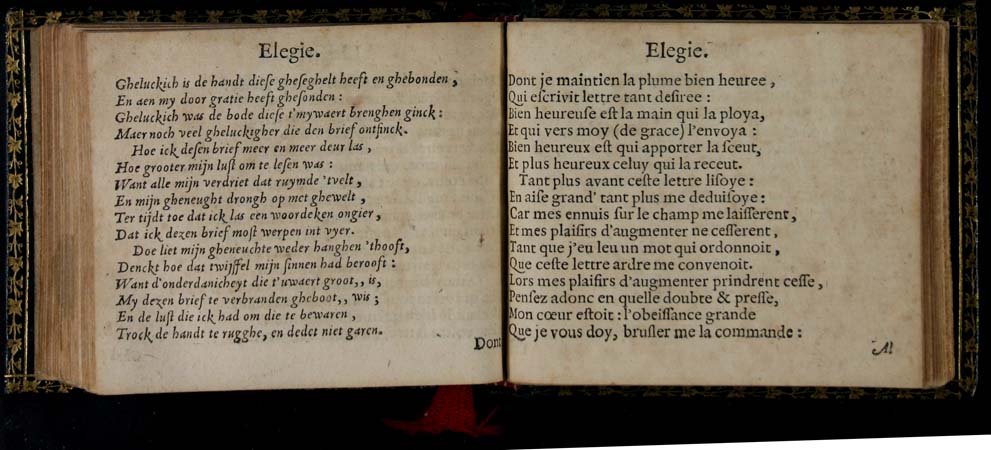 Elegie.
Gheluckich is de handt dieſe gheſeghelt heeft en ghebonden,
En aen my door gratie heeft gheſonden:
Gheluckich was de bode dieſe t'mywaert brenghen ginck:
Maer noch veel gheluckigher die den brief ontfinck.
Hoe ick deſen brief meer en meer deur las,
Hoe grooter mijn luſt om te leſen was:
Want alle mijn verdriet dat ruymde 'tvelt,
En mijn gheneught drongh op met ghewelt,
Ter tijdt toe dat ick las een woordeken ongier,
Dat ick dezen brief moſt werpen int vyer.
Doe liet mijn gheneuchte weder hanghen 'thooft,
Denckt hoe dat twijffel mijn ſinnen had berooft:
Want d'onderdanicheyt die t'uwaert groot,, is,
My dezen brief te verbranden gheboot,, wis;
En de luſt die ick had om die te bewaren,
Trock de handt te rugghe, en dedet niet garen.
Dont
Elegie.
Dont je maintien la plume bien heuree,
Qui eſcrivit lettre tant deſiree:
Bien heureuſe eſt la main qui la ploya,
Et qui vers moy (de grace) l'envoya:
Bien heureux eſt qui apporter la ſceut,
Et plus heureux celuy qui la receut.
Tant plus avant ceſte lettre liſoye:
En aiſe grand' tant plus me deduiſoye:
Car mes ennuis ſur le champ me laiſſerent,
Et mes plaiſirs d'augmenter ne ceſſerent,
Tant que j'eu leu un mot qui ordonnoit,
Que ceſte lettre ardre me convenoit.
Lors mes plaiſirs d'augmenter prindrent ceſſe,
Penſez adonc en quelle doubte & preſſe,
Mon cœur eſtoit: l'obeiſſance grande
Que je vous doy, bruſler me la commande: